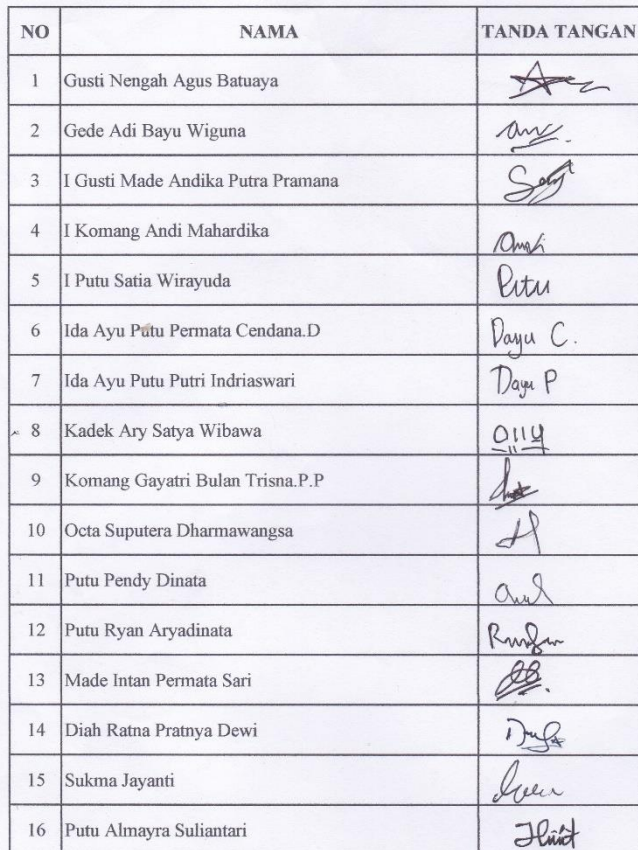 NO NAMA TANDA TANGAN
1 Gusti Nengah Agus Batuaya
2 Gede Adi Bayu Wiguna
3 I Gusti Made Andika Putra Pramana
4 I Komang Andi Mahardika
5 I Putu Satia Wirayuda Putu
6 Ida Ayu Putu Permata Cendana.D Dayu C.
7 Ida Ayu Putu Putri Indriaswari Dayu P
8 Kadek Ary Satya Wibawa
9 Komang Gayatri Bulan Trisna.P.P
10 Octa Suputera Dharmawangsa
11 Putu Pendy Dinata
12 Putu Ryan Aryadinata
13 Made Intan Permata Sari
14 Diah Ratna Pratnya Dewi
15 Sukma Jayanti
16 Putu Almayra Suliantari